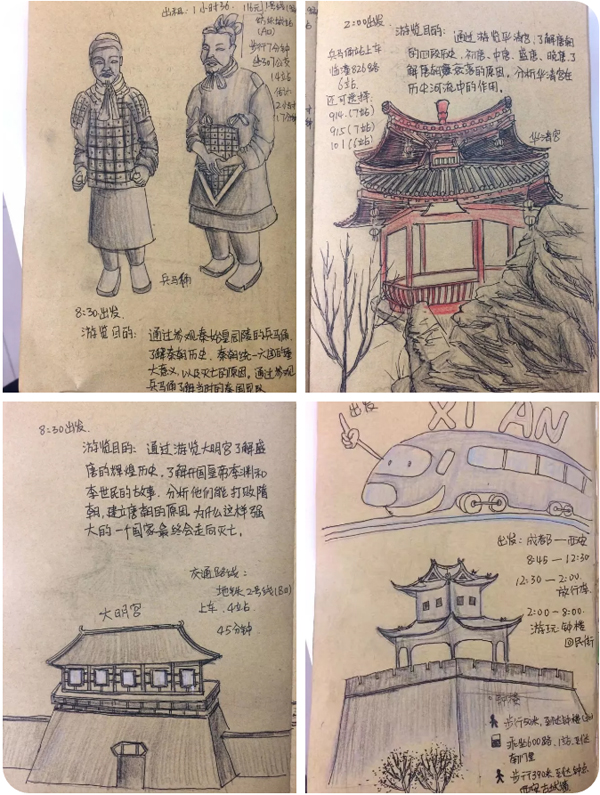 出租：1小时36.
8:30出发.
游览目的：通过参观秦始皇园陵的兵马俑,
了解秦朝历史，秦朝统一六国的重
大意义,以及灭亡的原因。通过参观
兵马俑了解当时的秦国军队
兵马俑
2:00出发.
游览目的：通过游览华清宫,了解唐朝
的四段历史，初唐、中唐、盛唐、晚唐.了
解唐朝衰落的原因，分析华清宫在
历史河流中的作用。
兵马俑站上车
临潼826路
6站.
还可选择:
914.(7站)
915(7站)
101(6站)
华清宫
8:30出发.
游览目的：通过游览大明宫了解盛
唐的辉煌历史，了解开国皇帝李渊和
李世民的故事，分析他们能打败隋
朝,建立唐朝的原因,为什么这样强
大的一个国家最终会走向灭亡。
交通路线:
地铁2号线(B口)
上车.4站
45分钟
大明宫
出发
XI AN
出发：成都—西安
8:45—12:30
12:30—2:00.
放行李.
2:00—8:00.
游玩钟楼
回民街
钟楼
步行50米,到达钟楼
乘坐600路，1站,到达
南门里
步行390米到达